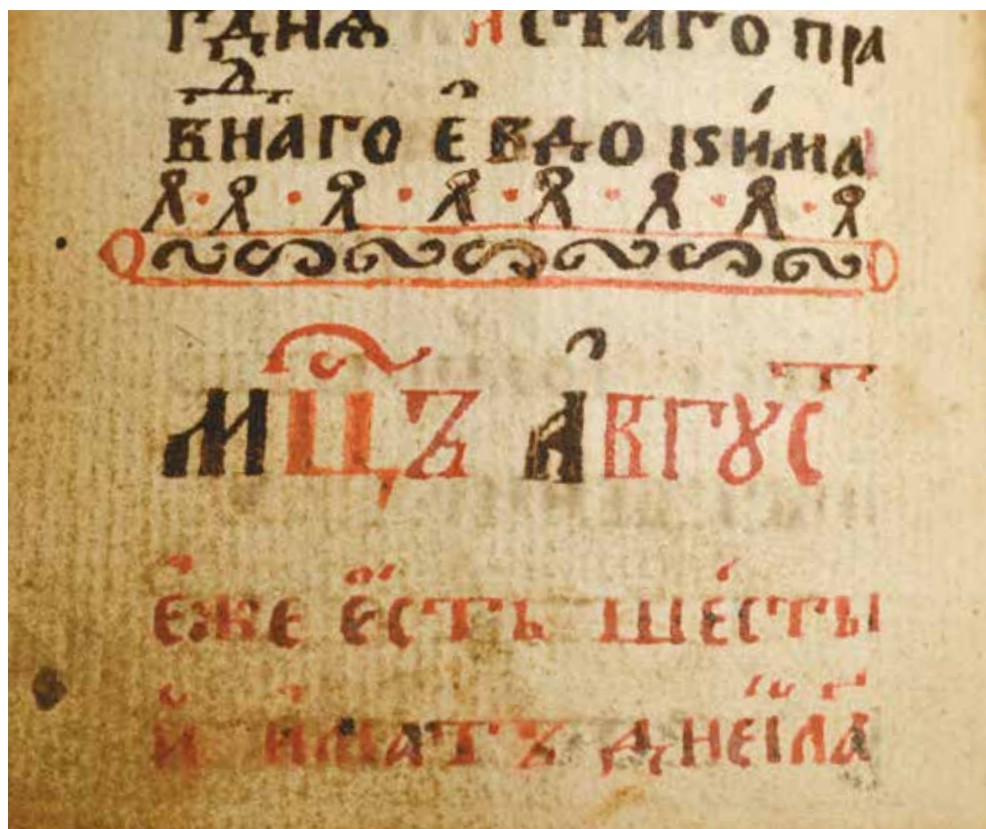 гднѧ и стаго пра
в҆дⷣнаго є҆вдоізи́ма
мц҃ъ а҆вгꙋсⷮ
є҆же є҆сть ше́сты
и҆ и҆матъ дне́й ла҃